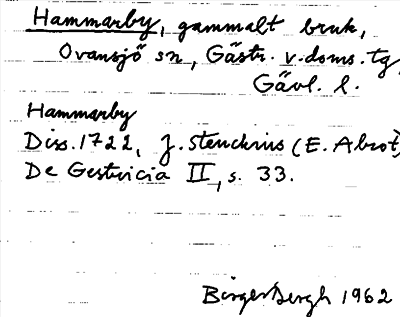 Hammarby, gammalt bruk,
Ovansjö sn, Gästr. v. doms. tg,
Gävl. l.
Hammarby
Diss. 1722, J. Stenchrius (E. Abrot)
De Gestricia II, s. 33.
Birger Bergh 1962